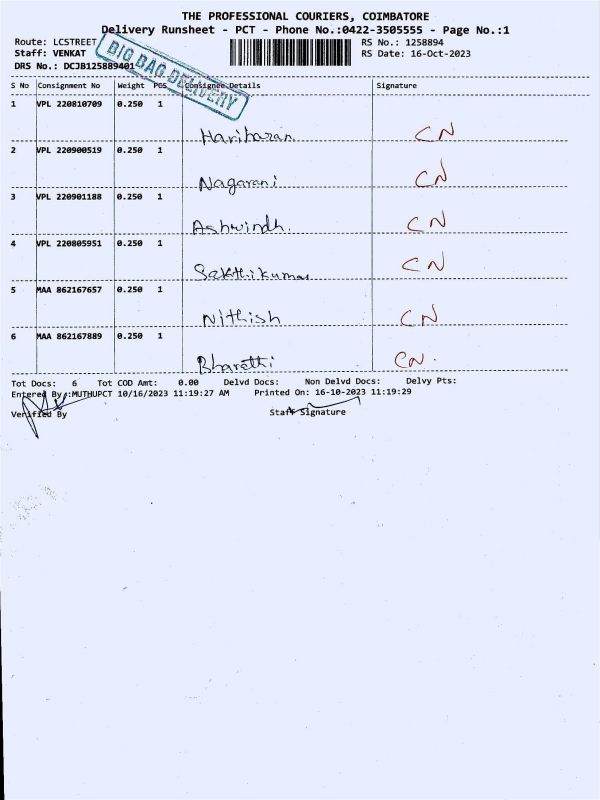 THE PROFESSIONAL COURIERS, COIMBATORE
Delivery Runsheet - PCT - Phone No.:0422-3505555 - Page No.:1
Route: LCSTREET
RS No.: 1258894
Staff: VENKAT
RS Date: 16-Oct-2023
DRS No.: DCJB125889401
BIG BAG DELIVERY
S No Consignment No Weight PCS Consignee Details Signature
1 VPL 220810709 0.250 1
Hariharan CN
2 VPL 220900519 0.250 1
Nagarani CN
3 VPL 220901188 0.250 1
Ashwindh. CN
4 VPL 220805951 0.250 1
Sakthikumar CN
5 MAA 862167657 0.250 1
Nithish CN
6 MAA 862167889 0.250 1
Bharathi CN.
Tot Docs: 6 Tot COD Amt: 0.00 Delvd Docs: Non Delvd Docs: Delvy Pts:
Entered By :MUTHUPCT 10/16/2023 11:19:27 AM Printed On: 16-10-2023 11:19:29
Verified By Staff Signature